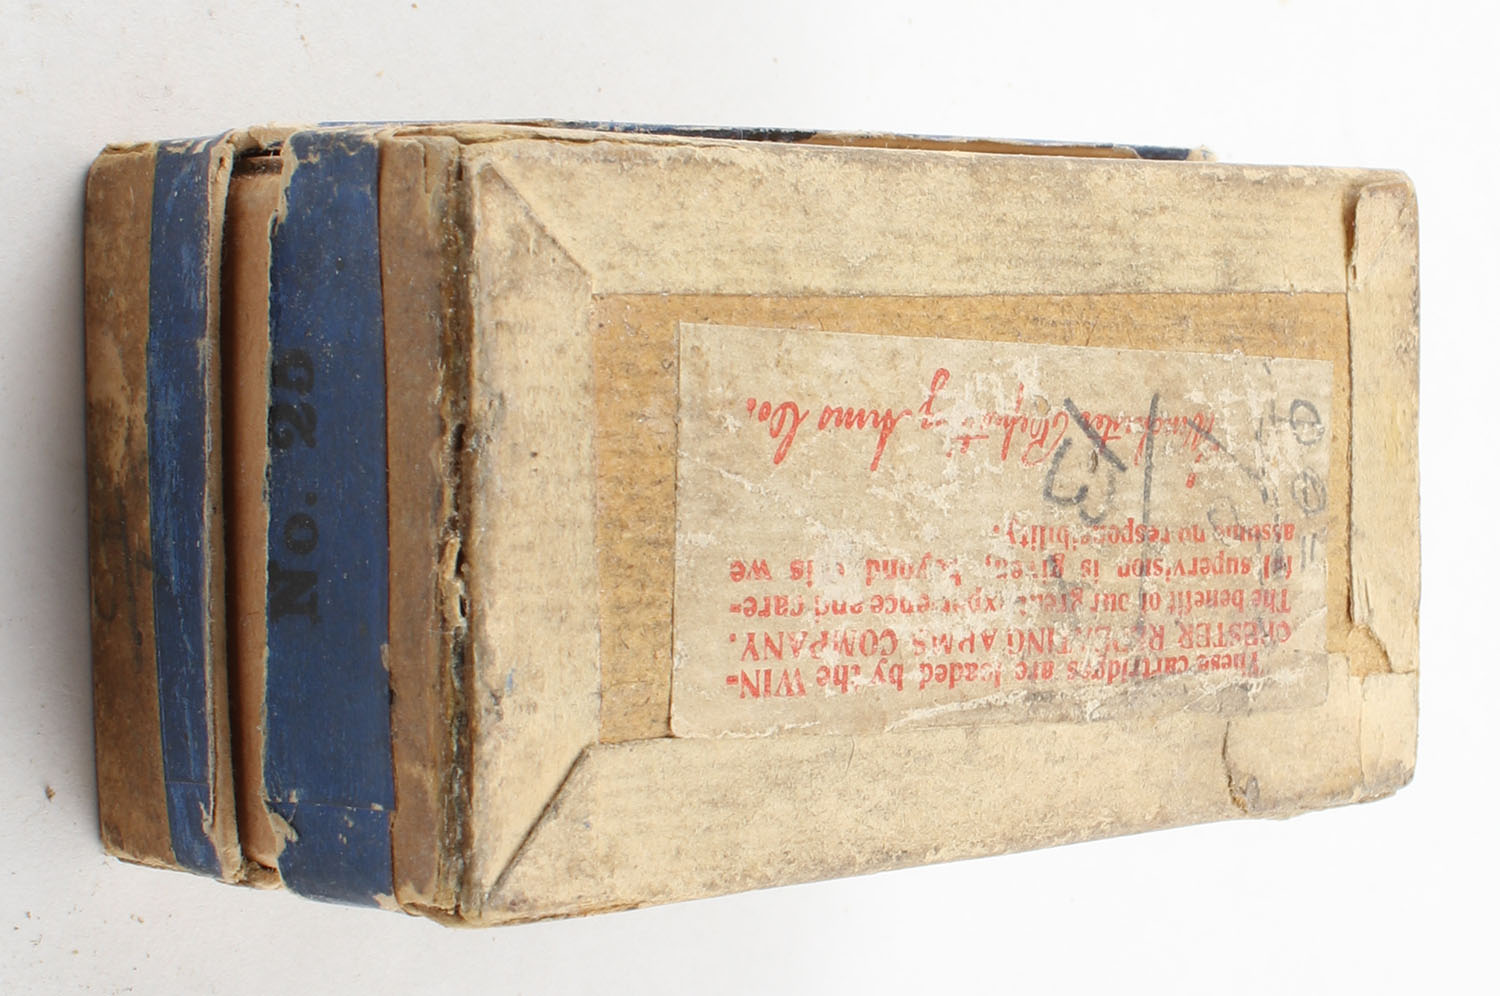 No. 2D
These cartridges are loaded by the WIN-
CHESTER REPEATING ARMS COMPANY.
The benefit of our great experience and care-
ful supervision is given, beyond this we
assume no responsibility.
Winchester Repeating Arms Co.